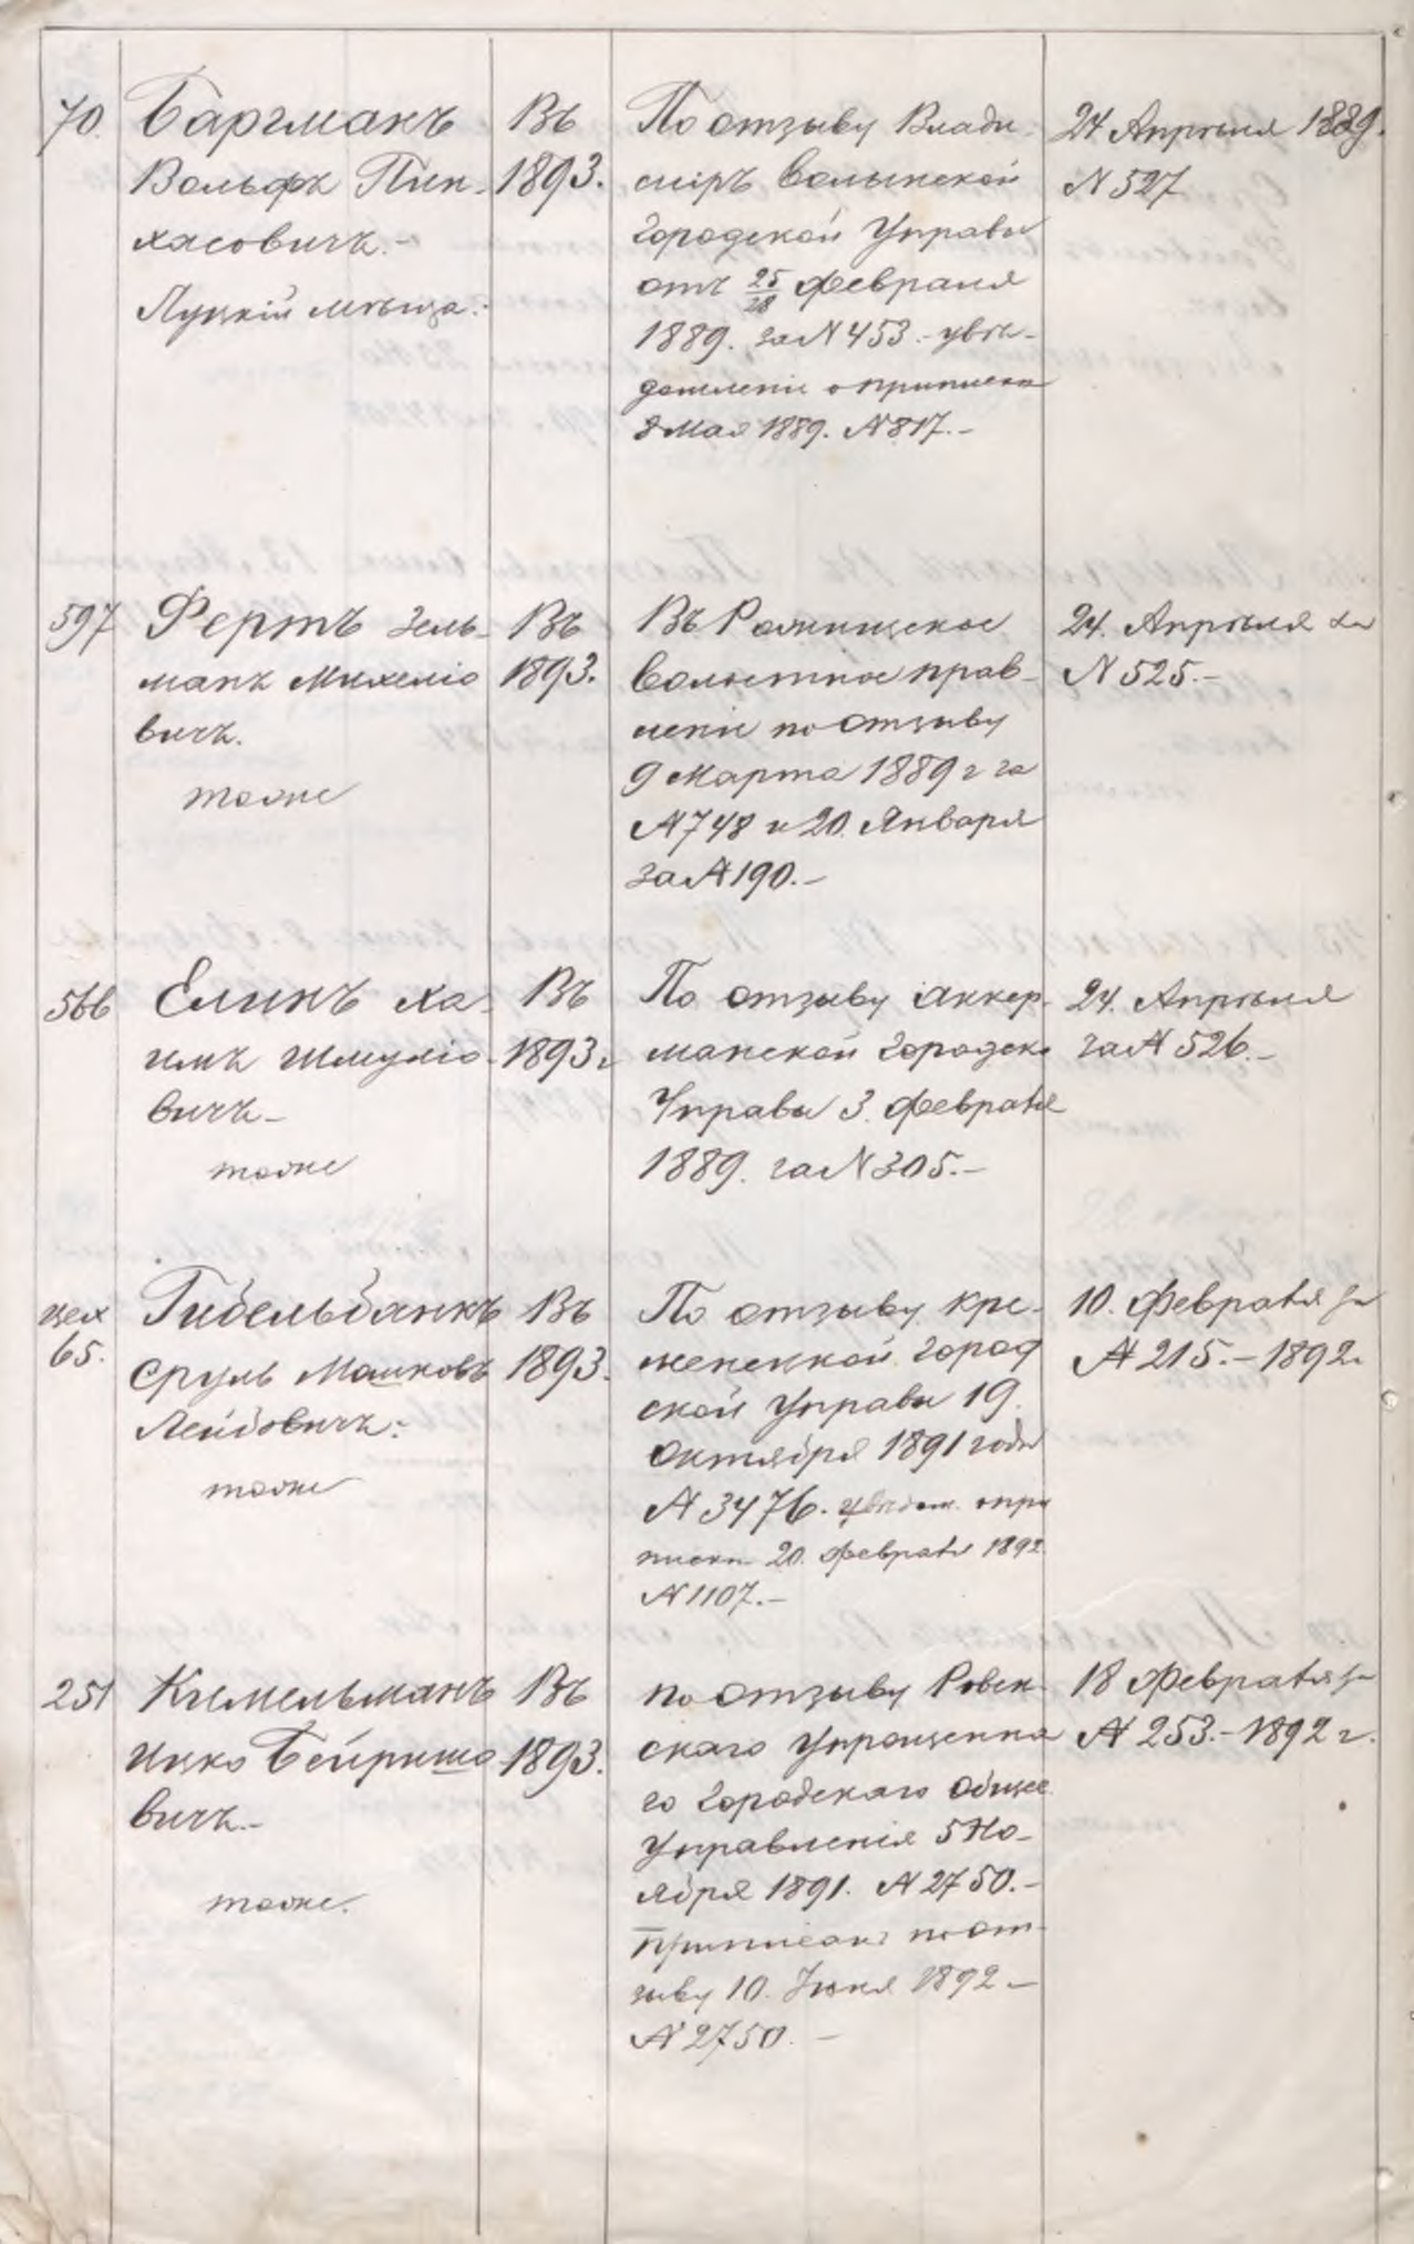 70.
Баргманъ
Вольфъ Пин-
хасовичъ.-
Луцкій мѣща.-
Въ
1893.
По отзыву Влади-
міръ Волынской
Городской Управы
отъ 25/28 февраля
1889. за N 453.- увѣ-
домленіе о припискѣ
8 Мая 1889. N 817.-
24 Апрѣля 1889.
N 527
597
Фертъ Зель-
манъ Михеліо
вичъ.
тоже
Въ
1893.
Въ Рожищское
Волостное прав-
леніе по отзыву
9 Марта 1889 г за
N 748 и 20. Января
за N 190.-
24. Апрѣля за
N 525.-
566
Елинъ Ха-
имъ Шмуліо-
вичъ-
тоже
Въ
1893 г
По отзыву Аккер-
манской Городско
Управы 3. Февраля
1889. за N 305.-
24. Апрѣля
за N 526.-
цех
65.
Гидельбанкъ
Сруль Мошковъ
Лейбовичъ.-
тоже
Въ
1893.
По отзыву Кре-
менецкой Город
ской Управы 19.
Октября 1891 года
N 3476. увѣдом. о при
писки 20. Февраля 1892.
N 1107.-
10. Февраля за
N 215.- 1892.
251
Кимельманъ
Ицко Бейришо
вичъ.-
тоже.
Въ
1893.
По отзыву Ровен-
скаго Упрощенна
го Городскаго Обще.
Управленія 5 Но-
ября 1891. N 2750.-
Приписанъ по от-
зыву 10. Іюня 1892-
N 2750.-
18 Февраля за
N 253.- 1892 г.